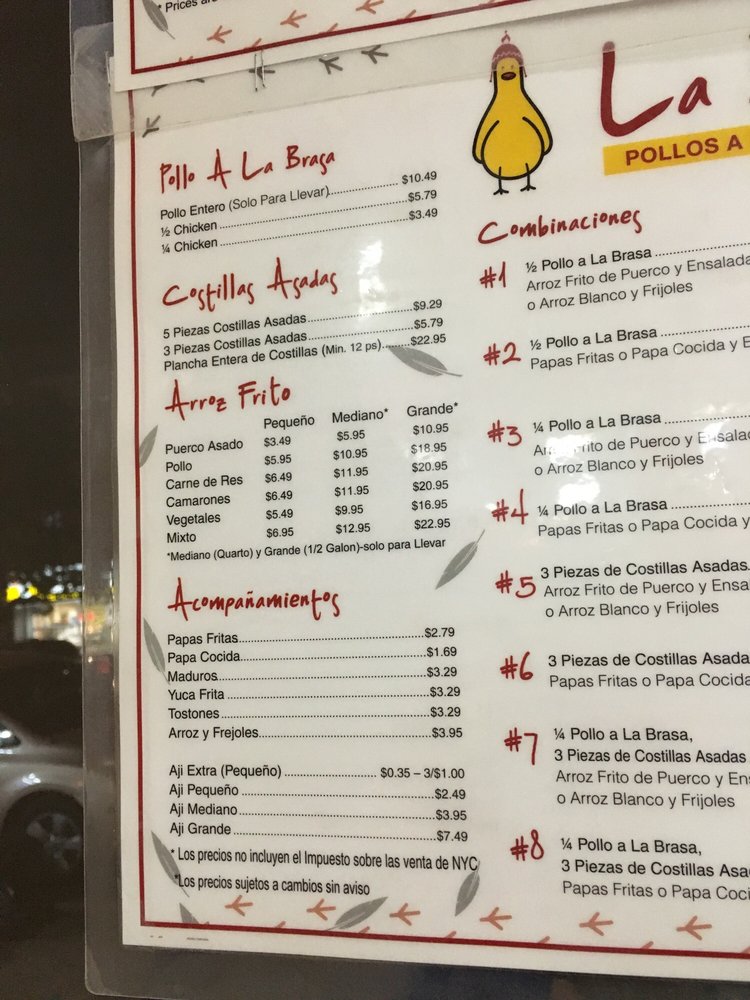 * Prices are
La
POLLOS A
Pollo A La Brasa
Pollo Entero (Solo Para Llevar) $10.49
½ Chicken $5.79
¼ Chicken $3.49
Costillas Asadas
5 Piezas Costillas Asadas $9.29
3 Piezas Costillas Asadas $5.79
Plancha Entera de Costillas (Min. 12 ps) $22.95
Arroz Frito
Pequeño Mediano* Grande*
Puerco Asado $3.49 $5.95 $10.95
Pollo $5.95 $10.95 $18.95
Carne de Res $6.49 $11.95 $20.95
Camarones $6.49 $11.95 $20.95
Vegetales $5.49 $9.95 $16.95
Mixto $6.95 $12.95 $22.95
*Mediano (Quarto) y Grande (1/2 Galon)-solo para Llevar
Acompañamientos
Papas Fritas $2.79
Papa Cocida $1.69
Maduros $3.29
Yuca Frita $3.29
Tostones $3.29
Arroz y Frejoles $3.95
Aji Extra (Pequeño) $0.35 – 3/$1.00
Aji Pequeño $2.49
Aji Mediano $3.95
Aji Grande $7.49
* Los precios no incluyen el Impuesto sobre las venta de NYC
*Los precios sujetos a cambios sin aviso
Combinaciones
#1 ½ Pollo a La Brasa
Arroz Frito de Puerco y Ensalada
o Arroz Blanco y Frijoles
#2 ½ Pollo a La Brasa
Papas Fritas o Papa Cocida y
#3 ¼ Pollo a La Brasa
Arroz Frito de Puerco y Ensalad
o Arroz Blanco y Frijoles
#4 ¼ Pollo a La Brasa
Papas Fritas o Papa Cocida y
#5 3 Piezas de Costillas Asadas
Arroz Frito de Puerco y Ensa
o Arroz Blanco y Frijoles
#6 3 Piezas de Costillas Asada
Papas Fritas o Papa Cocida
#7 ¼ Pollo a La Brasa,
3 Piezas de Costillas Asadas
Arroz Frito de Puerco y En
o Arroz Blanco y Frijoles
#8 ¼ Pollo a La Brasa,
3 Piezas de Costillas Asa
Papas Fritas o Papa Coci